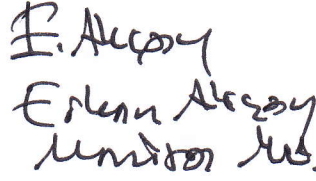 E. Akçay
Erkan Akçay
Manisa Mv.